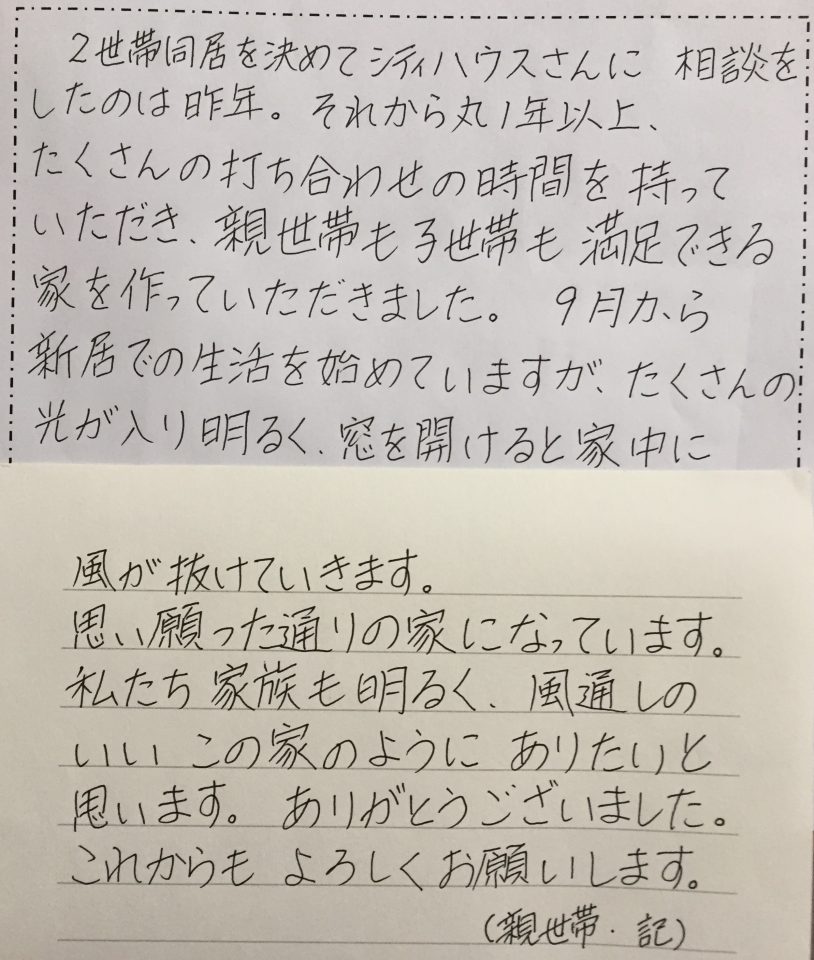 2世帯同居を決めてシティハウスさんに 相談を
したのは昨年。それから丸1年以上、
たくさんの打ち合わせの時間を持って
いただき、親世帯も子世帯も満足できる
家を作っていただきました。 9月から
新居での生活を始めていますが、たくさんの
光が入り明るく、窓を開けると家中に
風が抜けていきます。
思い願った通りの家になっています。
私たち家族も明るく、風通しの
いい この家のように ありたいと
思います。 ありがとうございました。
これからも よろしくお願いします。
(親世帯・記)